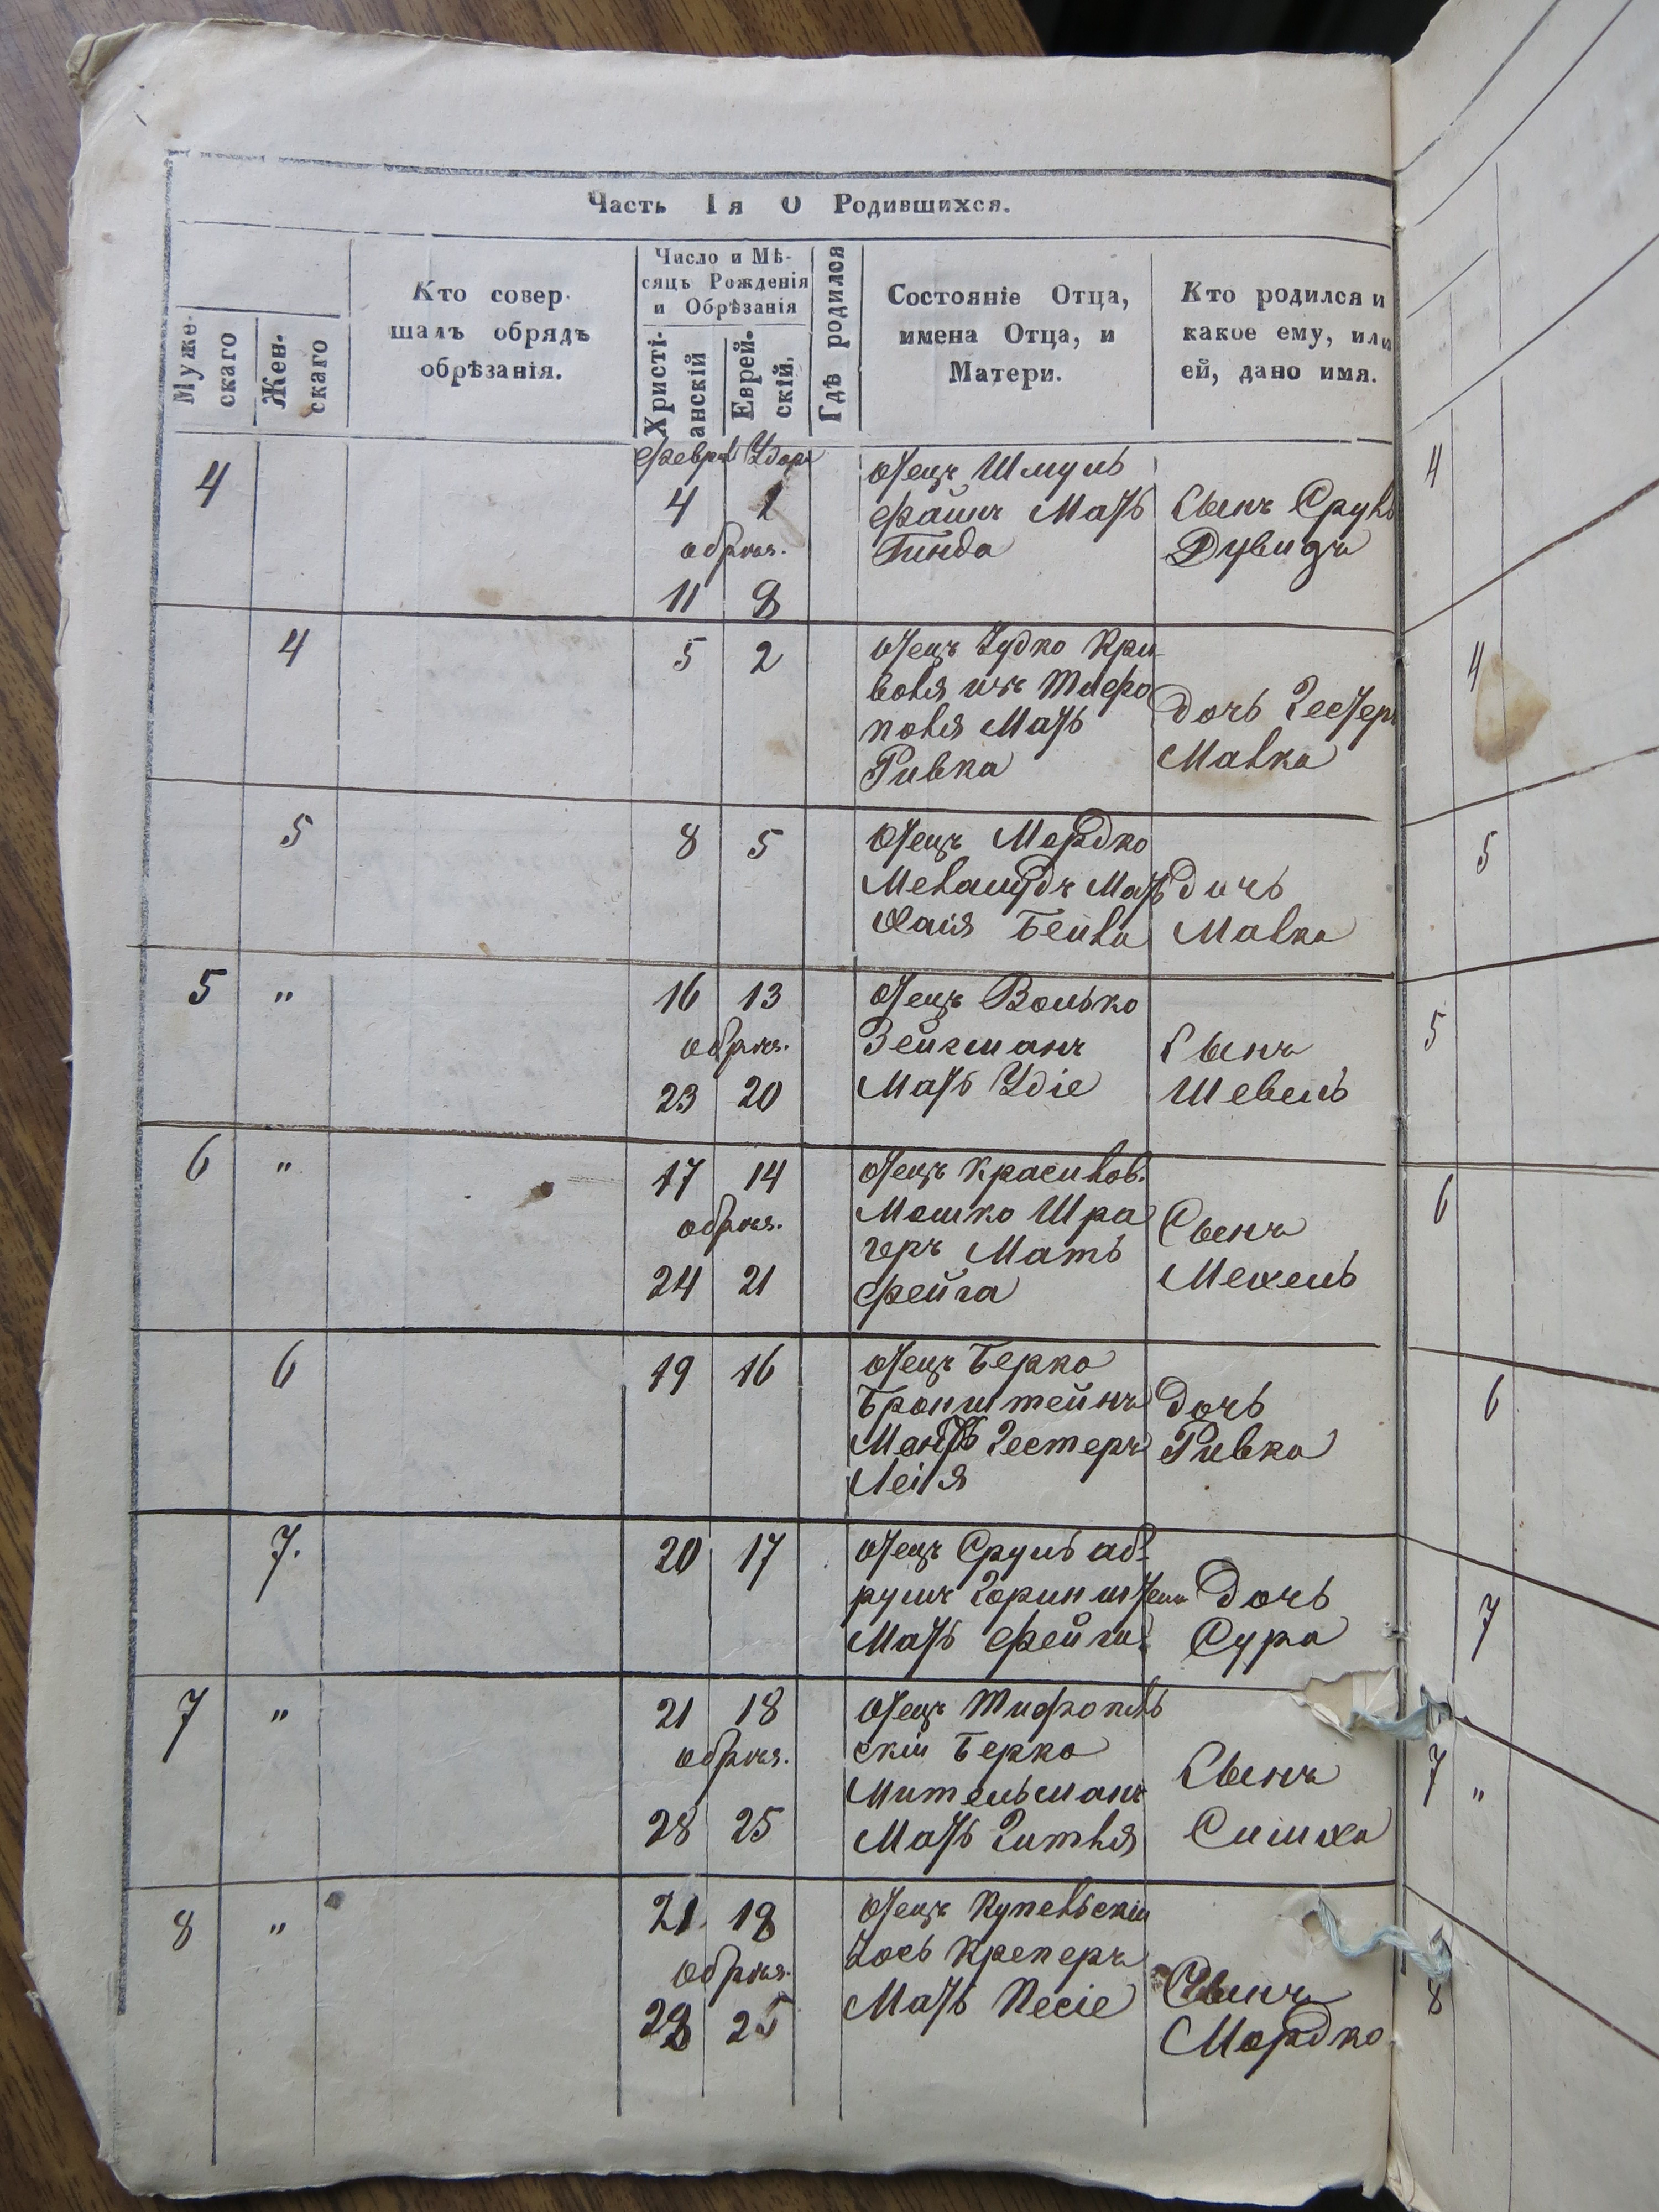 Часть Iя О Родившихся.
Муже-
скаго
Жен-
скаго
Кто совер-
шалъ обрядъ
обрѣзанія.
Число и Мѣ-
сяцъ Рожденія
и Обрѣзанія
Христі-
анскій
Еврей-
скій.
Гдѣ родился
Состояніе Отца,
имена Отца, и
Матери.
Кто родился и
какое ему, или
ей, дано имя.
4
Феврал Удоръ
4 1
обрѣз.
11 8
Отецъ Шмуль
Файнъ Мать
Гинда
Сынъ Сруль
Дувидъ
4
4
5 2
Отецъ Іудко Кри
воля изъ Тиро
поля Мать
Ривка
Дочь Гестеръ
Малка
4
5
8 5
Отецъ Мордко
Меламудъ Мать
Хаія Бейла
Дочь
Малка
5
5 "
16 13
обрѣз.
23 20
Отецъ Волько
Зейгманъ
Мать Удіе
Сынъ
Шевель
5
6 "
17 14
обрѣз.
24 21
Отецъ Красилов.
Мошко Шра
геръ Мать
Фейга
Сынъ
Мехель
6
6
19 16
Отецъ Берко
Бронштейнъ
Мать Гестеръ
Лейя
Дочь
Ривка
6
7.
20 17
Отецъ Сруль аб
румъ Горинштейн
Мать Фейга
Дочь
Сура
7
7 "
21 18
обрѣз.
28 25
Отецъ Тирополь
скій Берко
Мительманъ
Мать Гитля
Сынъ
Симха
7 "
8 "
21 18
обрѣз.
28 25
Отецъ Купельскій
Іось Креперъ
Мать Песіе
Сынъ
Мордко
8